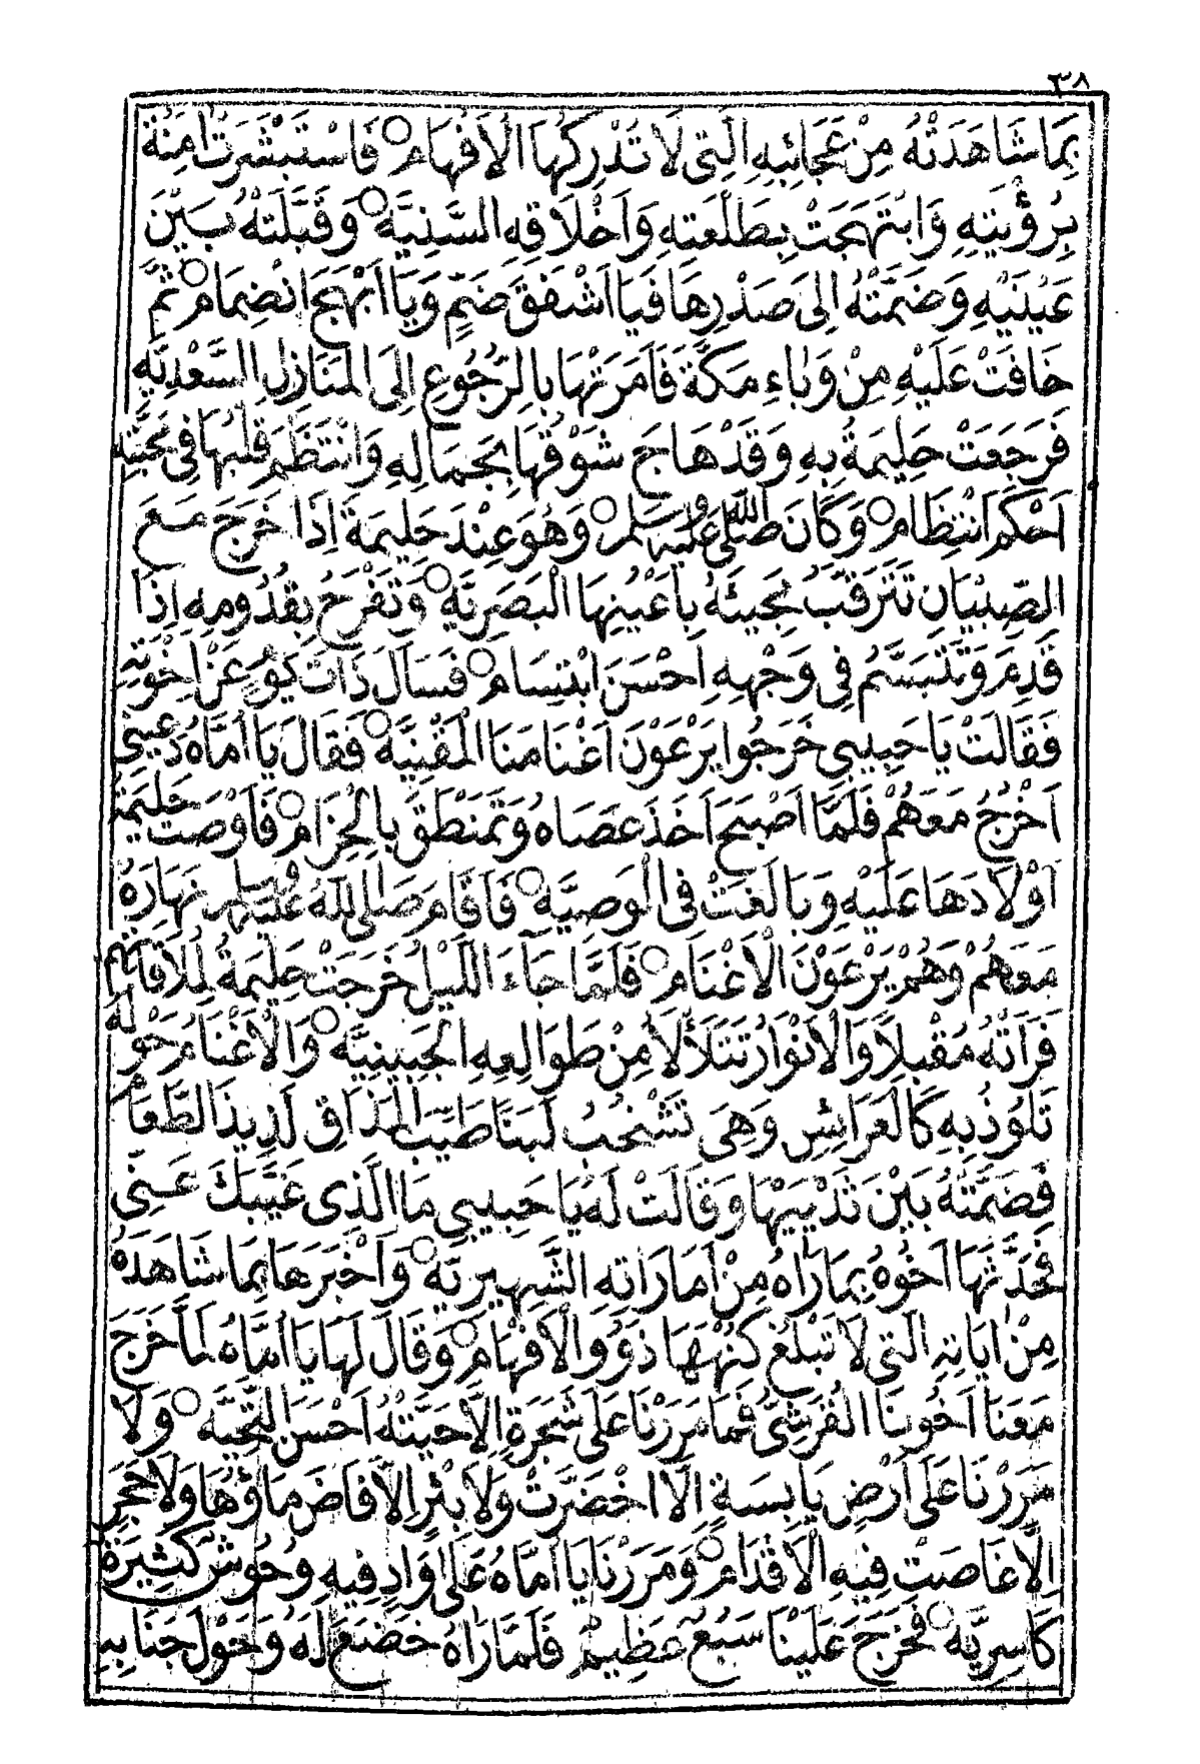 ٣٨
بِمَا شَاهَدَتْهُ مِنْ عَجَائِبِهِ الَّتِى لَا تُدْرِكُهَا الْاَفْهَامْ ○ فَاسْتَبْشَرَتْ اٰمِنَةُ
بِرُؤْيَتِهِ وَابْتَهَجَتْ بِطَلْعَتِهِ وَاَخْلَاقِهِ السَّنِيَّهْ ○ وَقَبَّلَتْهُ بَيْنَ
عَيْنَيْهِ وَضَمَّتْهُ اِلَى صَدْرِهَا فَيَا اَشْفَقَ ضَمٍّ وَيَا اَبْهَجَ انْضِمَامْ ○ ثُمَّ
خَافَتْ عَلَيْهِ مِنْ وَبَاءِ مَكَّةَ فَاَمَرَتْهَا بِالرُّجُوعِ اِلَى الْمَنَازِلِ السَّعْدِيَّهْ
فَرَجَعَتْ حَلِيمَةُ بِهِ وَقَدْ هَاجَ شَوْقُهَا بِجَمَالِهِ وَانْتَظَمَ قَلْبُهَا فِى مَحَبَّتِهِ
اَحْكَمَ انْتِظَامْ ○ وَكَانَ صَلَّى اللهُ عَلَيْهِ وَسَلَّمَ ○ وَهُوَ عِنْدَ حَلِيمَةَ اِذَا خَرَجَ مَعَ
الصِّبْيَانِ تَتَرَقَّبُ مَجِيئَهُ بِاَعْيُنِهَا الْبَصَرِيَّهْ ○ وَتَفْرَحُ بِقُدُومِهِ اِذَا
قَدِمَ وَتَتَبَسَّمُ فِى وَجْهِهِ اَحْسَنَ ابْتِسَامْ ○ فَسَاَلَ ذَاتَ يَوْمٍ عَنْ اِخْوَتِهِ
فَقَالَتْ يَا حَبِيبِي خَرَجُوا يَرْعَوْنَ اَغْنَامَنَا الْمَقْنِيَّهْ ○ فَقَالَ يَا اُمَّاهُ دَعِينِى
اَخْرُجُ مَعَهُمْ فَلَمَّا اَصْبَحَ اَخَذَ عَصَاهُ وَتَمَنْطَقَ بِالْحِزَامْ ○ فَاَوْصَتْ حَلِيمَةُ
اَوْلَادَهَا عَلَيْهِ وَبَالَغَتْ فِى الْوَصِيَّهْ ○ فَاَقَامَ صَلَّى اللهُ عَلَيْهِ وَسَلَّمَ نَهَارَهُ
مَعَهُمْ وَهُمْ يَرْعَوْنَ الْاَغْنَامْ ○ فَلَمَّا جَاءَ اللَّيْلُ خَرَجَتْ حَلِيمَةُ لِمُلَاقَاتِهِمْ
فَرَاَتْهُ مُقْبِلًا وَالْاَنْوَارُ تَتَلَأْلَأُ مِنْ طَوَالِعِهِ الْجَبِينِيَّهْ ○ وَالْاَغْنَامُ حَوْلَهُ
تَلُوذُ بِهِ كَالْعَرَائِسِ وَهِيَ تَشْخُبُ لَبَنًا طَيِّبَ الْمَذَاقِ لَذِيذَ الطَّعَامْ
فَضَمَّتْهُ بَيْنَ ثَدْيَيْهَا وَقَالَتْ لَهُ يَا حَبِيبِي مَا الَّذِى غَيَّبَكَ عَنِّى
فَحَدَّثَهَا اَخُوهُ بِمَا رَاٰهُ مِنْ اَمَارَاتِهِ الشَّهِيرِيَّهْ ○ وَاَخْبَرَهَا بِمَا شَاهَدَهُ
مِنْ اٰيَاتِهِ الَّتِى لَا تَبْلُغُ كُنْهَهَا ذَوُوا الْاَفْهَامْ ○ وَقَالَ لَهَا يَا اُمَّاهُ لَمَّا خَرَجَ
مَعَنَا اَخُونَا الْقُرَشِىُّ فَمَا مَرَرْنَا عَلَى شَجَرَةٍ اِلَّا حَيَّتْهُ اَحْسَنَ التَّحِيَّهْ ○ وَلَا
مَرَرْنَا عَلَى اَرْضٍ يَابِسَةٍ اِلَّا اخْضَرَّتْ وَلَا بِئْرٍ اِلَّا فَاضَ مَاؤُهَا وَلَا حَجَرٍ
اِلَّا غَاصَتْ فِيهِ الْاَقْدَامْ ○ وَمَرَرْنَا يَا اُمَّاهُ عَلَى وَادٍ فِيهِ وُحُوشٌ كَثِيرَةٌ
كَاسِرِيَّهْ ○ فَخَرَجَ عَلَيْنَا سَبُعٌ عَظِيمٌ فَلَمَّا رَاٰهُ خَضَعَ لَهُ وَحَوْلَ جَنَابِهِ